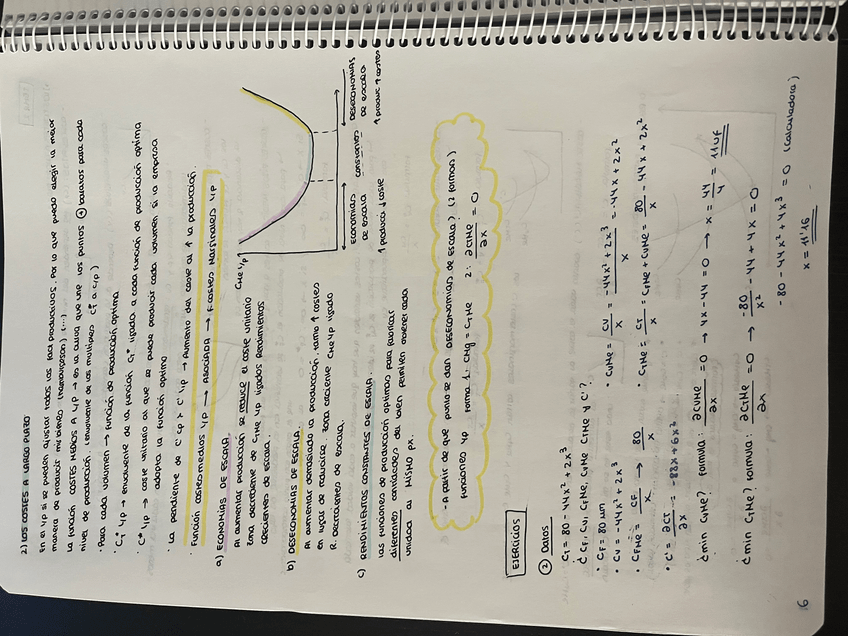 2) LOS COSTES A LARGO PLAZO
En el l/p si se pueden ajustar todos los fact productivos, por lo que puedo elegir la mejor
manera de producir mis bienes
La función COSTES MEDIOS A L/P → es la curva que une los puntos + baratos para cada
nivel de producción.
· Para cada volumen → función de producción óptima
l/p → envolvente de la función ligada a cada función de producción óptima
C* l/p → coste unitario al que se puede producir cada volumen si la empresa
adopta la función óptima
· La pendiente de C' cp > C' l/p → Aumento del coste al ↑ la producción.
· Función costes medios l/p → ASOCIADA → f costes Marginales l/p
a) ECONOMÍAS DE ESCALA.
Al aumentar producción se reduce el coste unitario
zona decreciente de CTMe l/p ligados Rendimientos
crecientes de escala.
b) DESECONOMÍAS DE ESCALA.
Al aumentar demasiado la producción, ↑ costes
en lugar de reducirse. zona creciente CMe l/p ligado
R. decrecientes de escala.
c) RENDIMIENTOS CONSTANTES DE ESCALA.
Las funciones de producción óptimas para fabricar
diferentes cantidades del bien permiten obtener cada
unidad al MISMO px.
CMe l/p
ECONOMIAS
DE ESCALA
↑ produce ↓ coste
constantes
DESECONOMIAS
DE ESCALA
↑ produc ↑ costes
- A partir de que punto se dan DESECONOMÍAS DE ESCALA? (2 formas)
Funciones l/p Forma 1: CMg = CTMe 2: ∂CTMe / ∂x = 0
EJERCICIOS
② Datos
CT = 80 - 44x² + 2x³
¿ CF, CV, CFMe, CVMe CTMe y C'?
· CF = 80 um
· CV = -44x² + 2x³
· CVMe = CV / x = -44x² + 2x³ / x = -44x + 2x²
· CFMe = CF / x → 80 / x
· CTMe = CT / x = CFMe + CVMe = 80 / x - 44x + 2x²
· C' = ∂CT / ∂x = -88x + 6x²
¿ min CVMe? Formula: ∂CVMe / ∂x = 0 → 4x - 44 = 0 → x = 44 / 4 = 11 uf
¿ min CTMe? Formula: ∂CTMe / ∂x = 0 → -80 / x² - 44 + 4x = 0
-80 - 44x² + 4x³ = 0 (calculadora)
x = 11'16
16